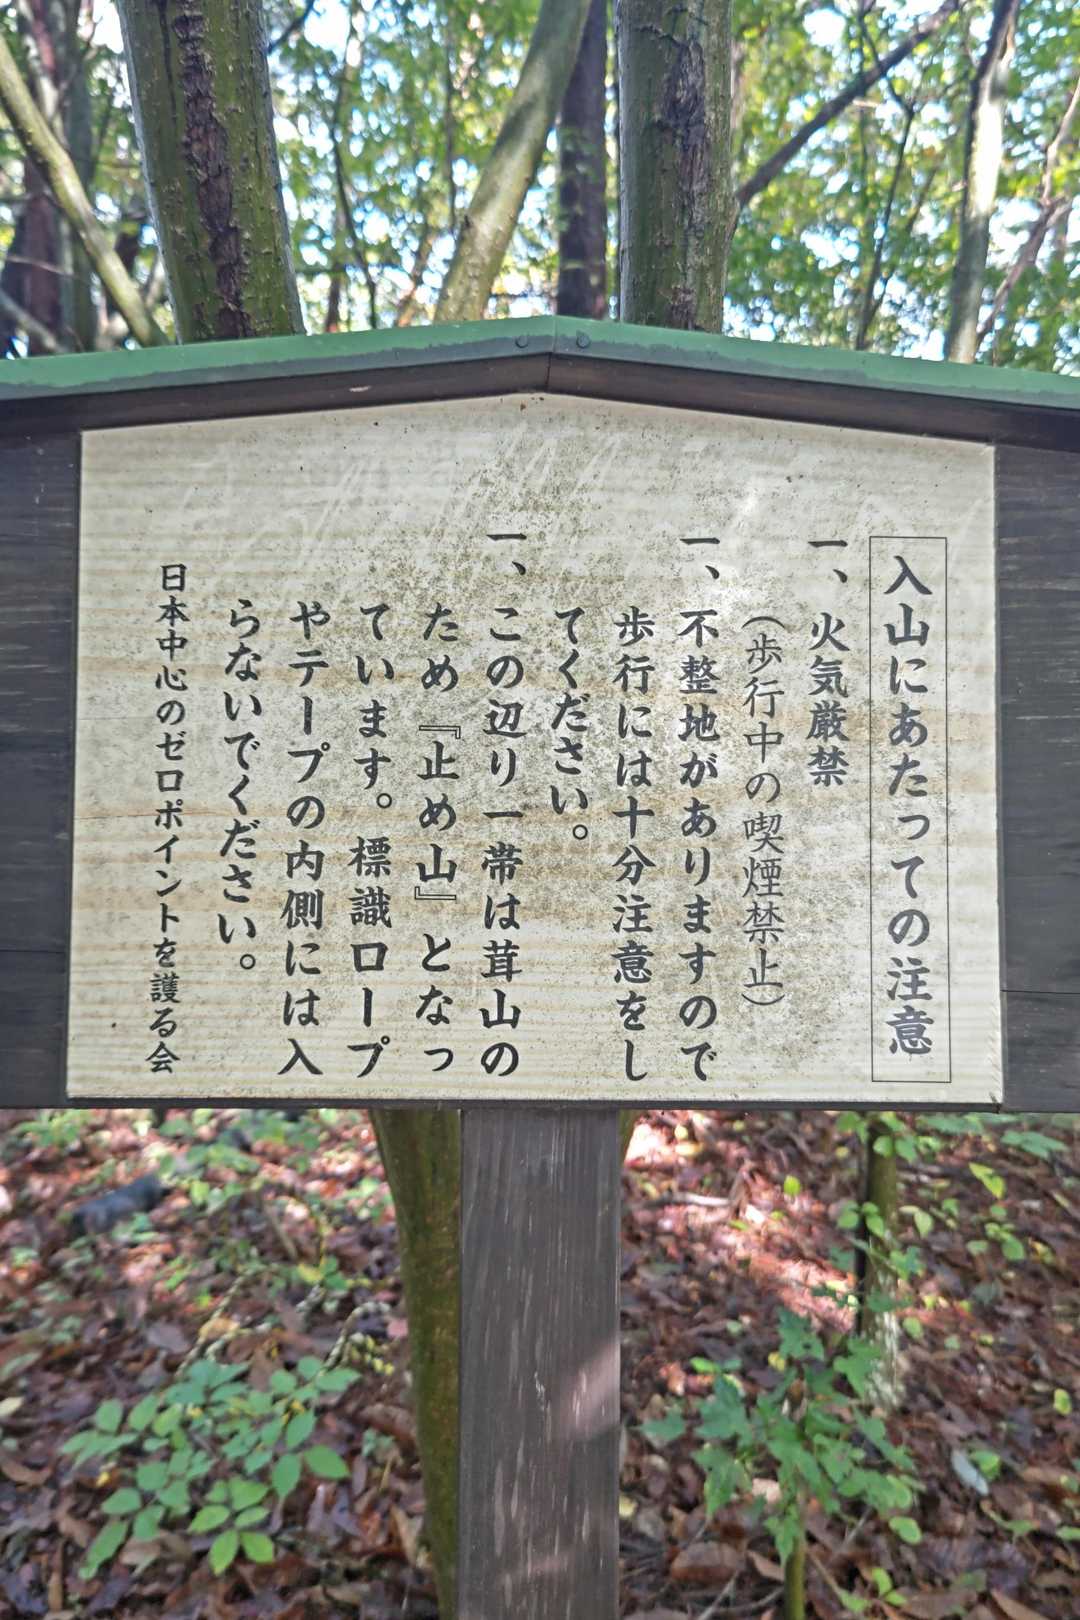 入山にあたっての注意
一、火気厳禁
（歩行中の喫煙禁止）
一、不整地がありますので
歩行には十分注意をし
てください。
一、この辺り一帯は茸山の
ため『止め山』となっ
ています。標識ロープ
やテープの内側には入
らないでください。
日本中心のゼロポイントを護る会